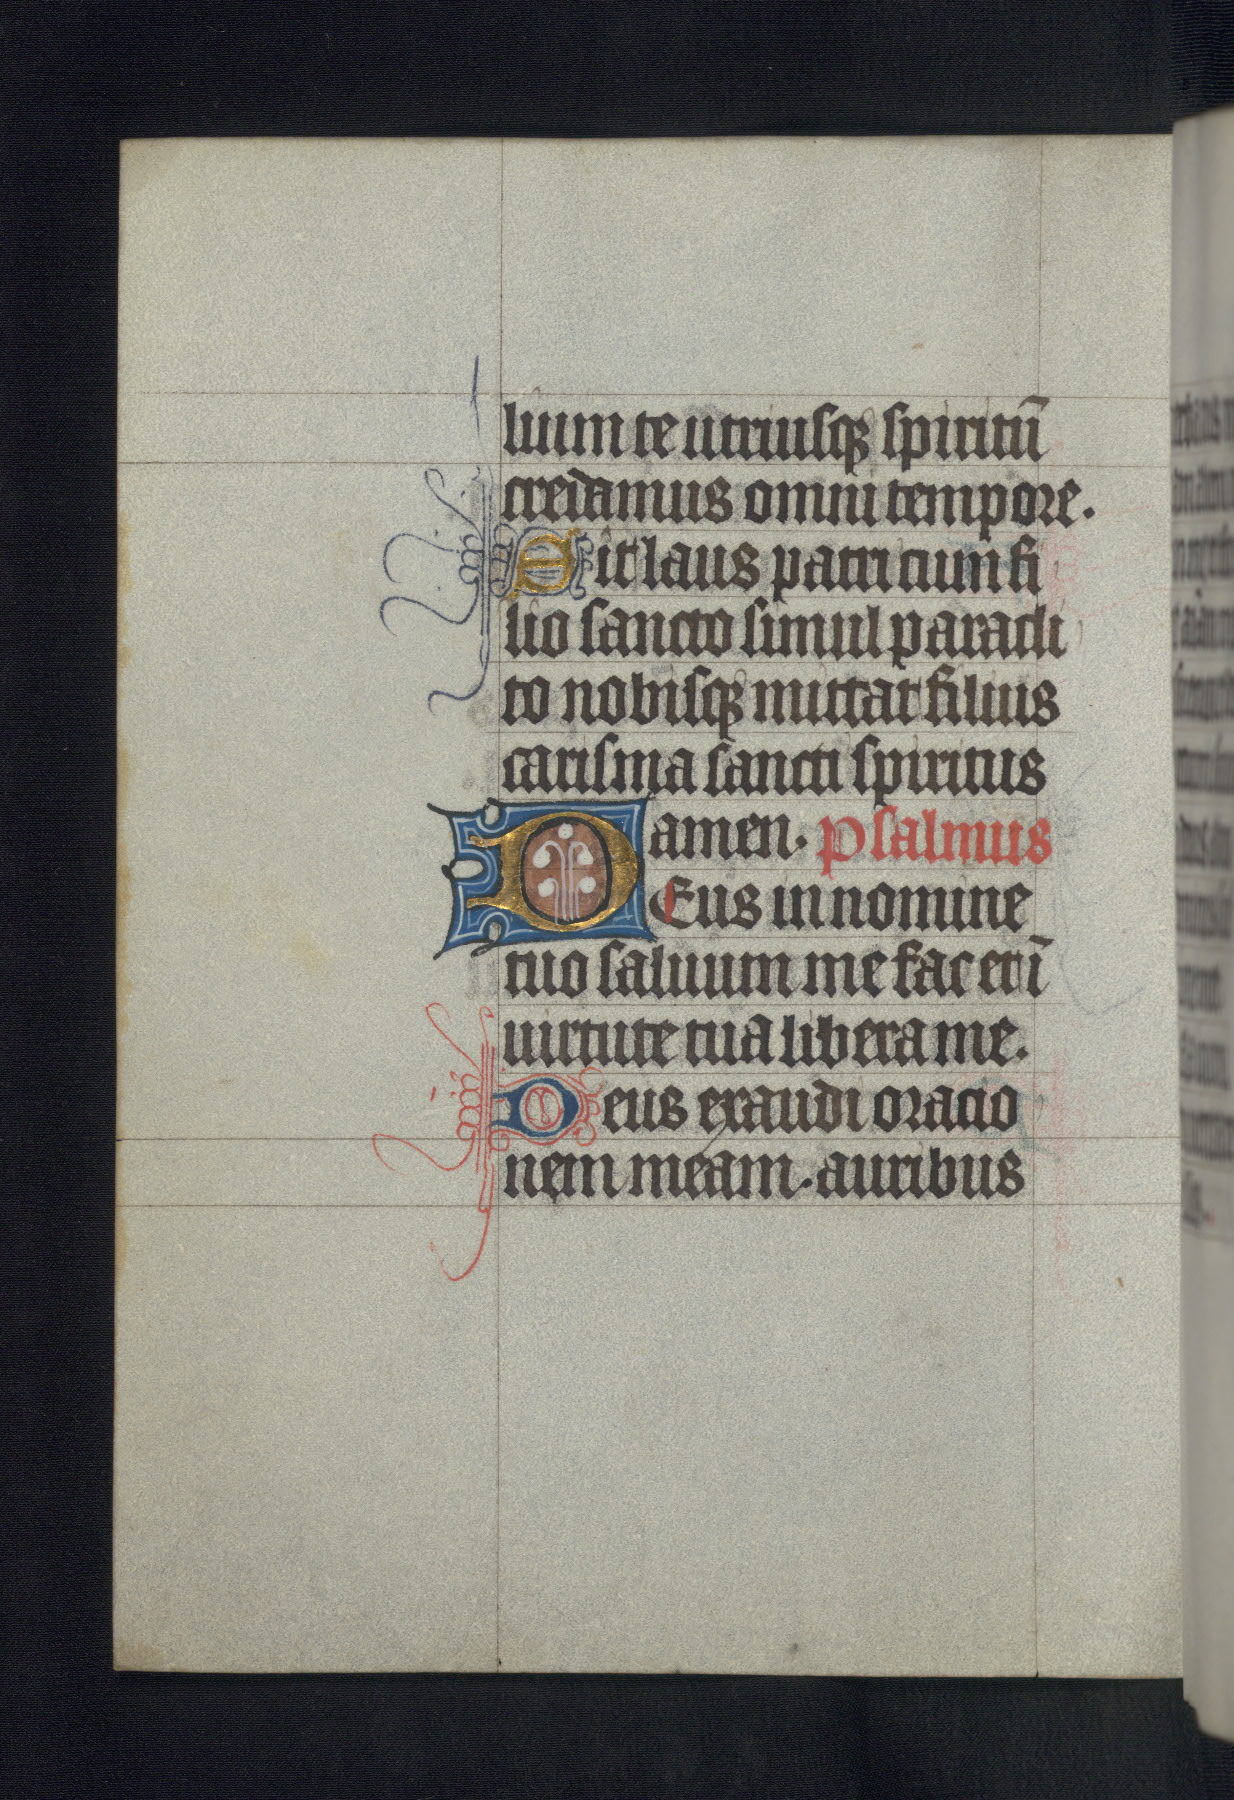 lium te utriusqꝫ spiritū
credamus omni tempore.
Sit laus patri cum fi
lio sancto simul paracli
to nobisqꝫ mittat filius
carisma sancti spiritus
amen. psalmus
DEus in nomine
tuo saluum me fac et ī
uirtute tua libera me.
Deus exaudi oracio
nem meam. auribus